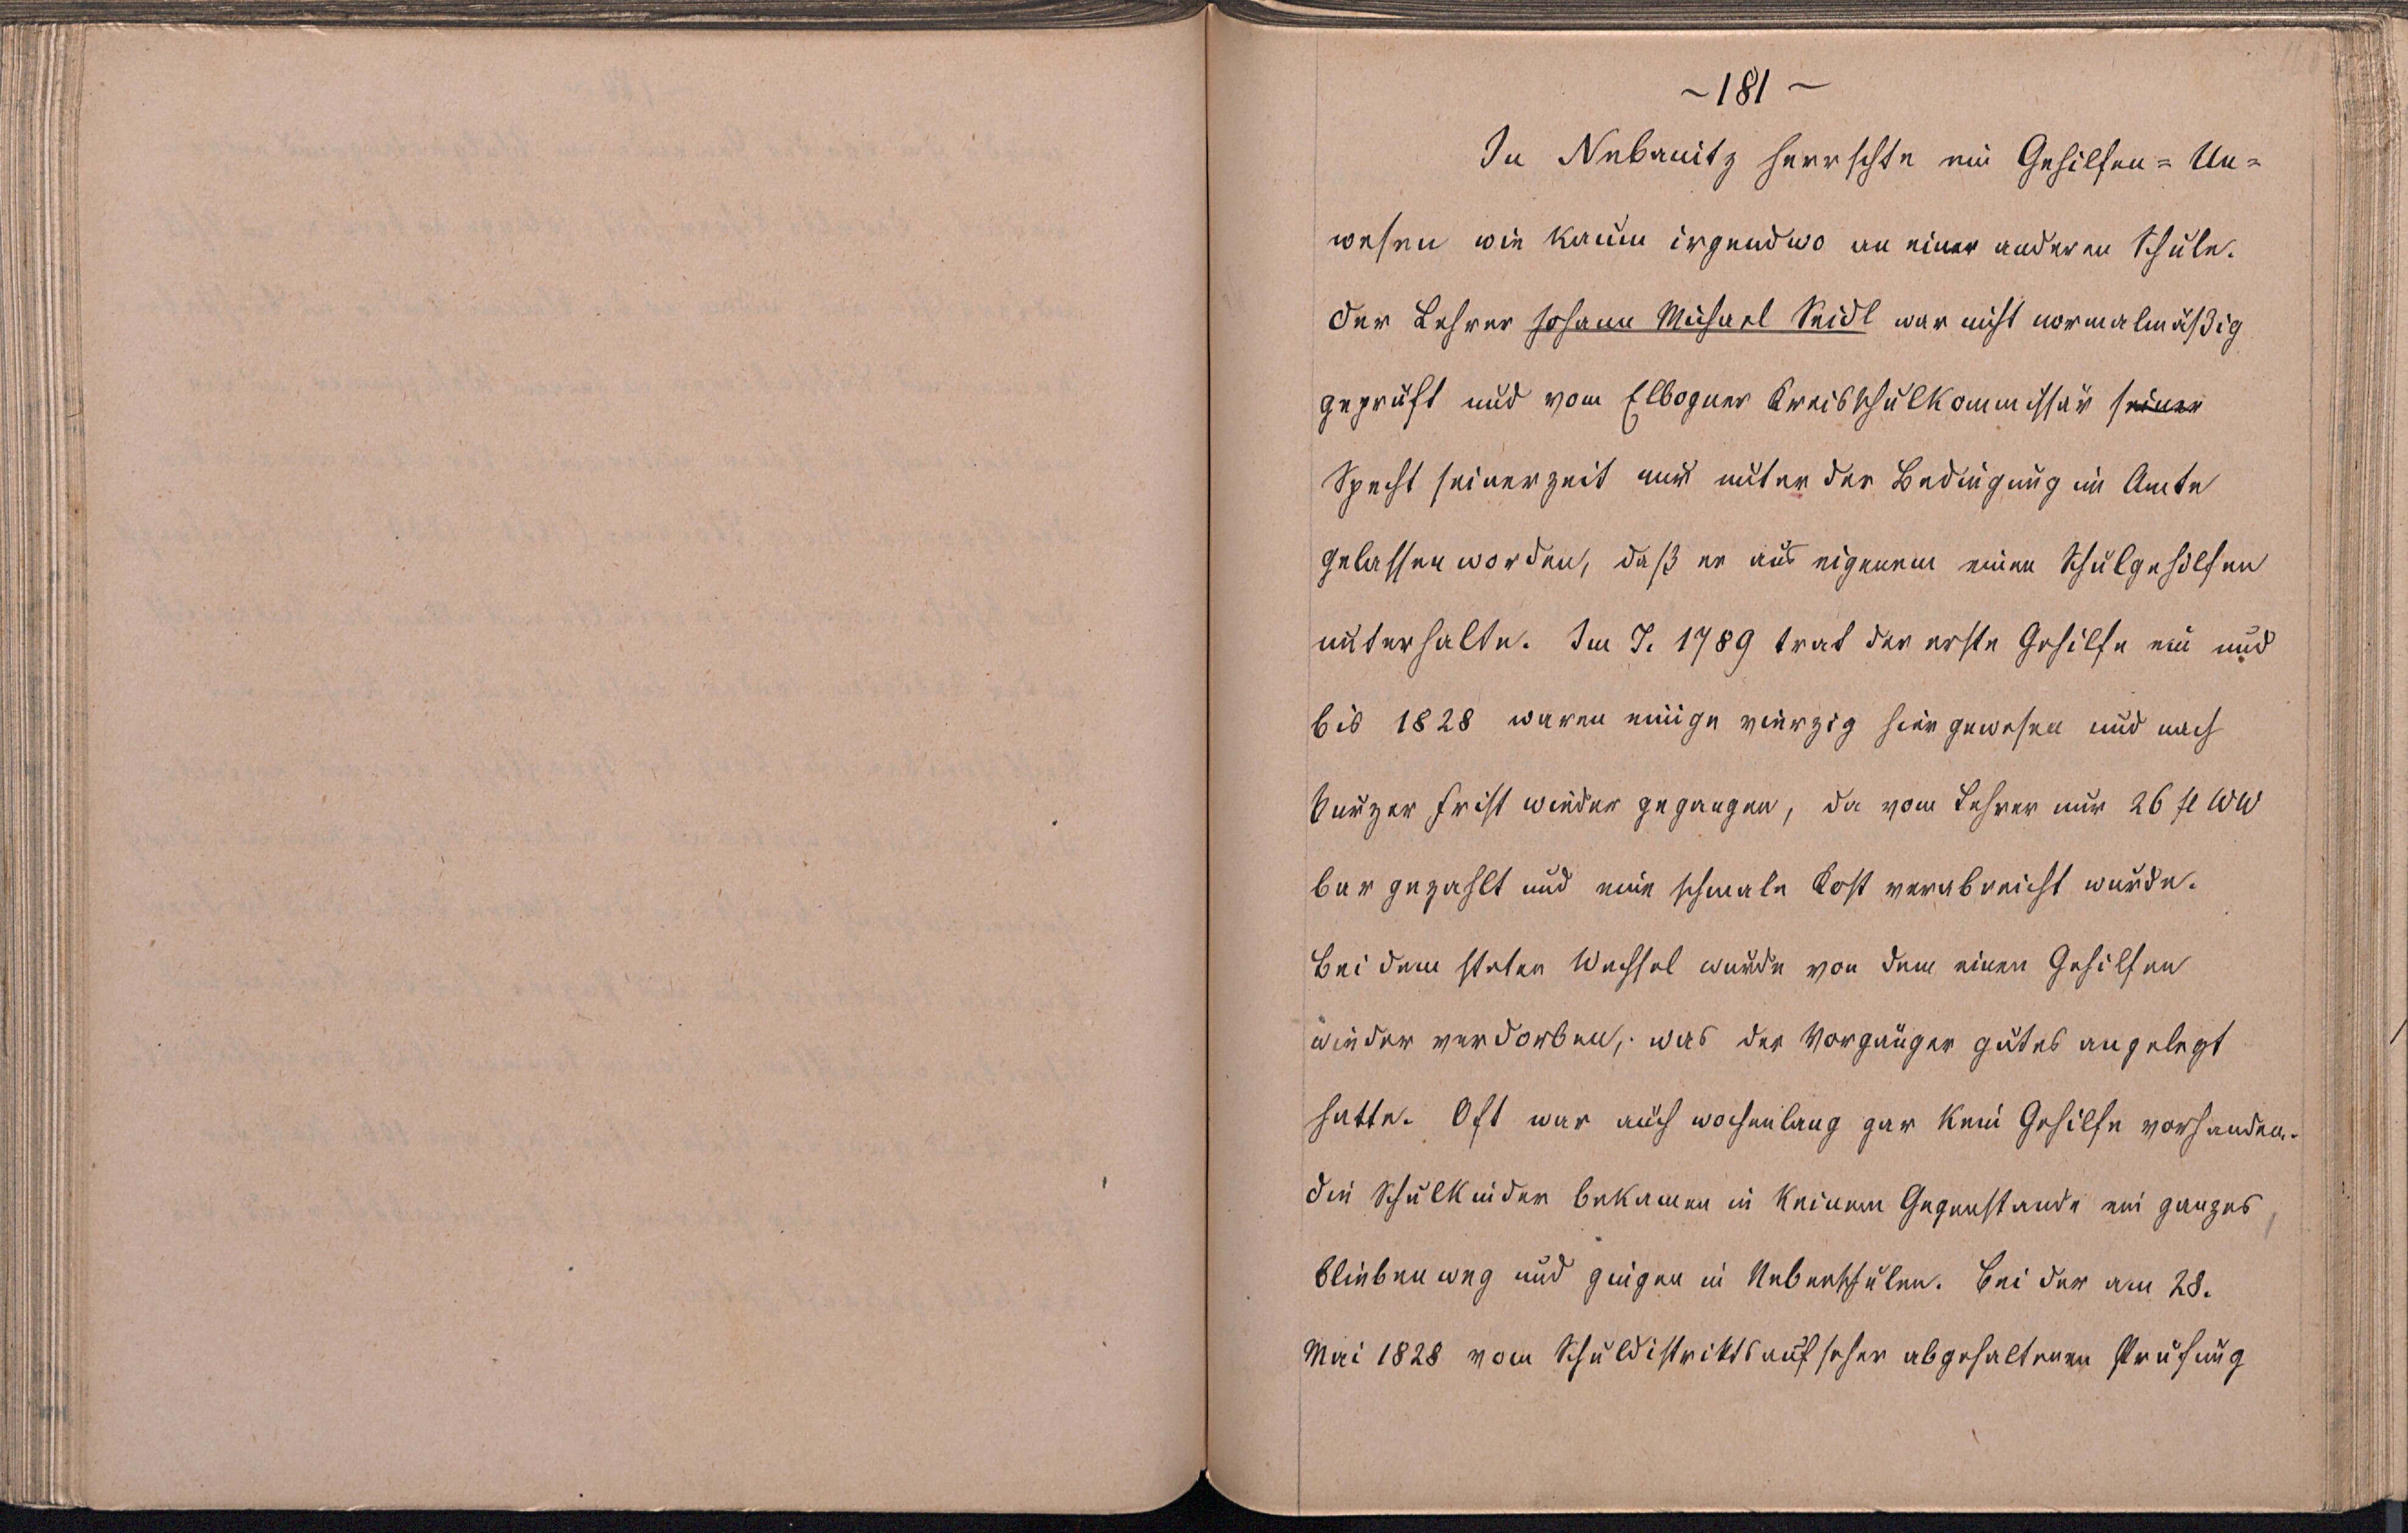 ~ 181 ~
In Nebanitz herrschte ein Gehilfen=Un=
wesen wie kaum irgendwo an einer anderen Schule.
Der Lehrer Johann Michael Seidl war nicht normalmäßig
geprüft und vom Elbogner Kreisschulkommissär seiner
Specht seinerzeit nur unter der Bedingung im Amte
gelassen worden, daß er aus eigenem einen Schulgehilfen
unterhalte. Im J. 1789 trat der erste Gehilfe ein und
bis 1828 waren einige vierzig hier gewesen und nach
kurzer Frist wieder gegangen, da vom Lehrer nur 26 fl WW
bar gezahlt und eine schmale Kost verabreicht wurde.
Bei dem steten Wechsel wurde von dem einen Gehilfen
wieder verdorben, was der Vorgänger gutes angelegt
hatte. Oft war auch wochenlang gar kein Gehilfe vorhanden.
Die Schulkinder bekamen in keinem Gegenstande ein ganzes,
blieben weg und gingen in Nebenschulen. Bei der am 28.
Mai 1828 vom Schuldistriktsaufseher abgehaltenen Prüfung